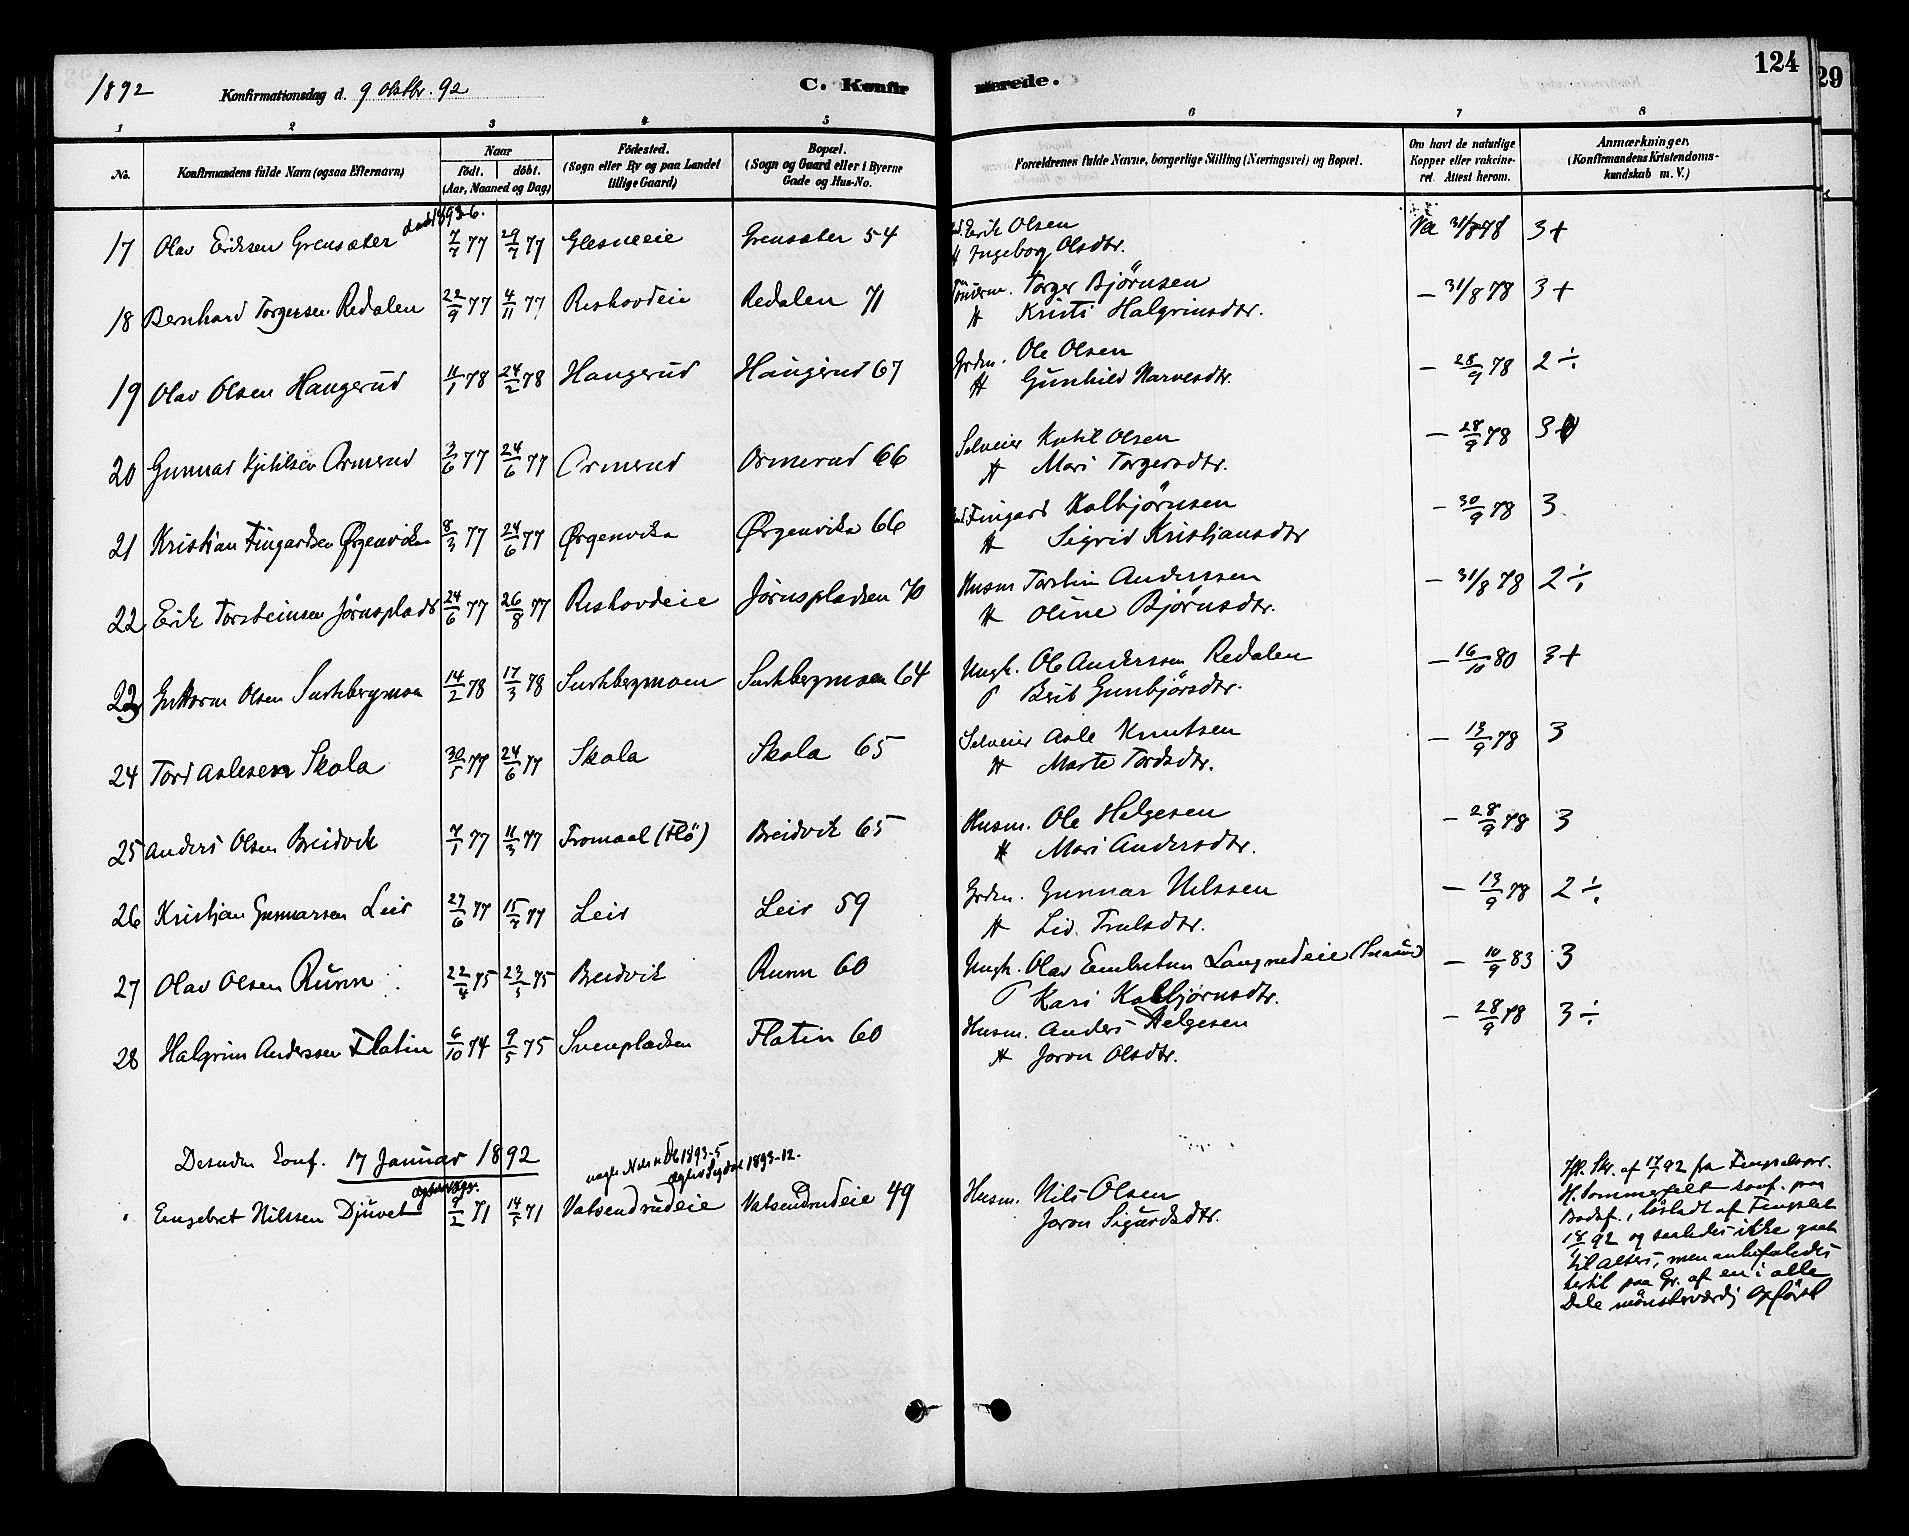 1892 Konfirmationsdag d. 9 Oktbr. 92 C. Konfir merede. 124
29
1 2 3 4 5 6 7 8
No. Konfirmandens fulde Navn (ogsaa Efternavn) Naar født. døbt. (Aar, Maaned og Dag) Födested. (Sogn eller By og paa Landet tillige Gaard) Bopæl. (Sogn og Gaard eller i Byerne Gade og Hus-No. Forældrenes fulde Navne, borgerlige Stilling (Næringsvei) og Bopæl. Om havt de naturlige Kopper eller vakcineret. Attest herom. Anmærkninger. (Konfirmandens Kristendomskundskab m. V.)
17 Olav Eriksen Grensæter 7/7 77 29/7 77 Glesneeie Grensæter 54 Erik Olsen Va 31/8 78 3+
Ingeborg Olsdtr.
18 Bernhard Torgersen Redalen 22/9 77 4/11 77 Reshovdeie Redalen 71 Torger Bjørnsen – 31/8 78 3+
H Kristi Halgrimsdtr.
19 Olav Olsen Haugerud 11/1 78 24/2 78 Haugerud Haugerud 67 Grdm. Ole Olsen – 28/9 78 2 ÷
H Gunhild Narvesdtr.
20 Gunnar Kjetilsen Ormerud 3/6 77 24/6 77 Ormerud Ormerud 66 Selveier Ketil Olsen – 28/9 78 3
H Mari Torgersdtr.
21 Kristian Fingardsen Ørgenviken 8/3 77 24/6 77 Ørgenvika Ørgenvika 66 Fingard Kolbjørnsen – 30/9 78 3
H Sigrid Kristiansdtr
22 Erik Torsteinsen Jørnsplads 24/6 77 26/8 77 Reshovdeie Jørnspladsen 70 Husm Torstein Anderssen – 31/8 78 2 ÷
H Oline Bjørnsdtr.
23 Guttorm Olsen Surtebergmoen 14/2 78 17/3 78 Surtebergmoen Surtebergmoen 64 Ungk. Ole Anderssen Redalen – 16/10 80 3+
P Berit Gunbjørsdtr.
24 Tord Aslesen Skola 30/5 77 24/6 77 Skola Skola 65 Selveier Asle Knutsen – 13/9 78 3
H Marte Tordsdtr.
25 Anders Olsen Breidvik 7/1 77 11/3 77 Tromaal (Flø) Breidvik 65 Husm. Ole Helgesen – 28/9 78 3
H Mari Andersdtr.
26 Kristian Gunnarsen Leir 27/6 77 15/7 77 Leir Leir 59 Grdm. Gunnar Nilssen – 13/9 78 2 ÷
H Liv. Trulsdtr.
27 Olav Olsen Runn 22/4 75 23/5 75 Breidvik Runn 60 Ungk. Olav Embretsen Langnedeie – 10/9 83 3
P Kari Kolbjørnsdtr.
28 Halgrim Anderssen Flatin 6/10 74 9/5 75 Svenpladsen Flatin 60 Husm. Anders Helgesen – 28/9 78 3 ÷
H Joron Olsdtr.
Desuden Conf. 17 Januar 1892
Engebret Nilssen Djuvet 9/2 71 14/5 71 Vatsendrudeie Vatsendrudeie 49 Husm. Nils Olsen
Joron Sigurdsdtr.
Ifl. Skr. af 17/1 92 fra Fengselspr.
H. Sommerfelt konf. paa
Bodsf., løsladt af Fengslet
18/1 92 og saaledes ikke gaat
til alters, men anbefaledes
dertil paa Gr. af en i alle
Dele mønsterværdig Opførsel